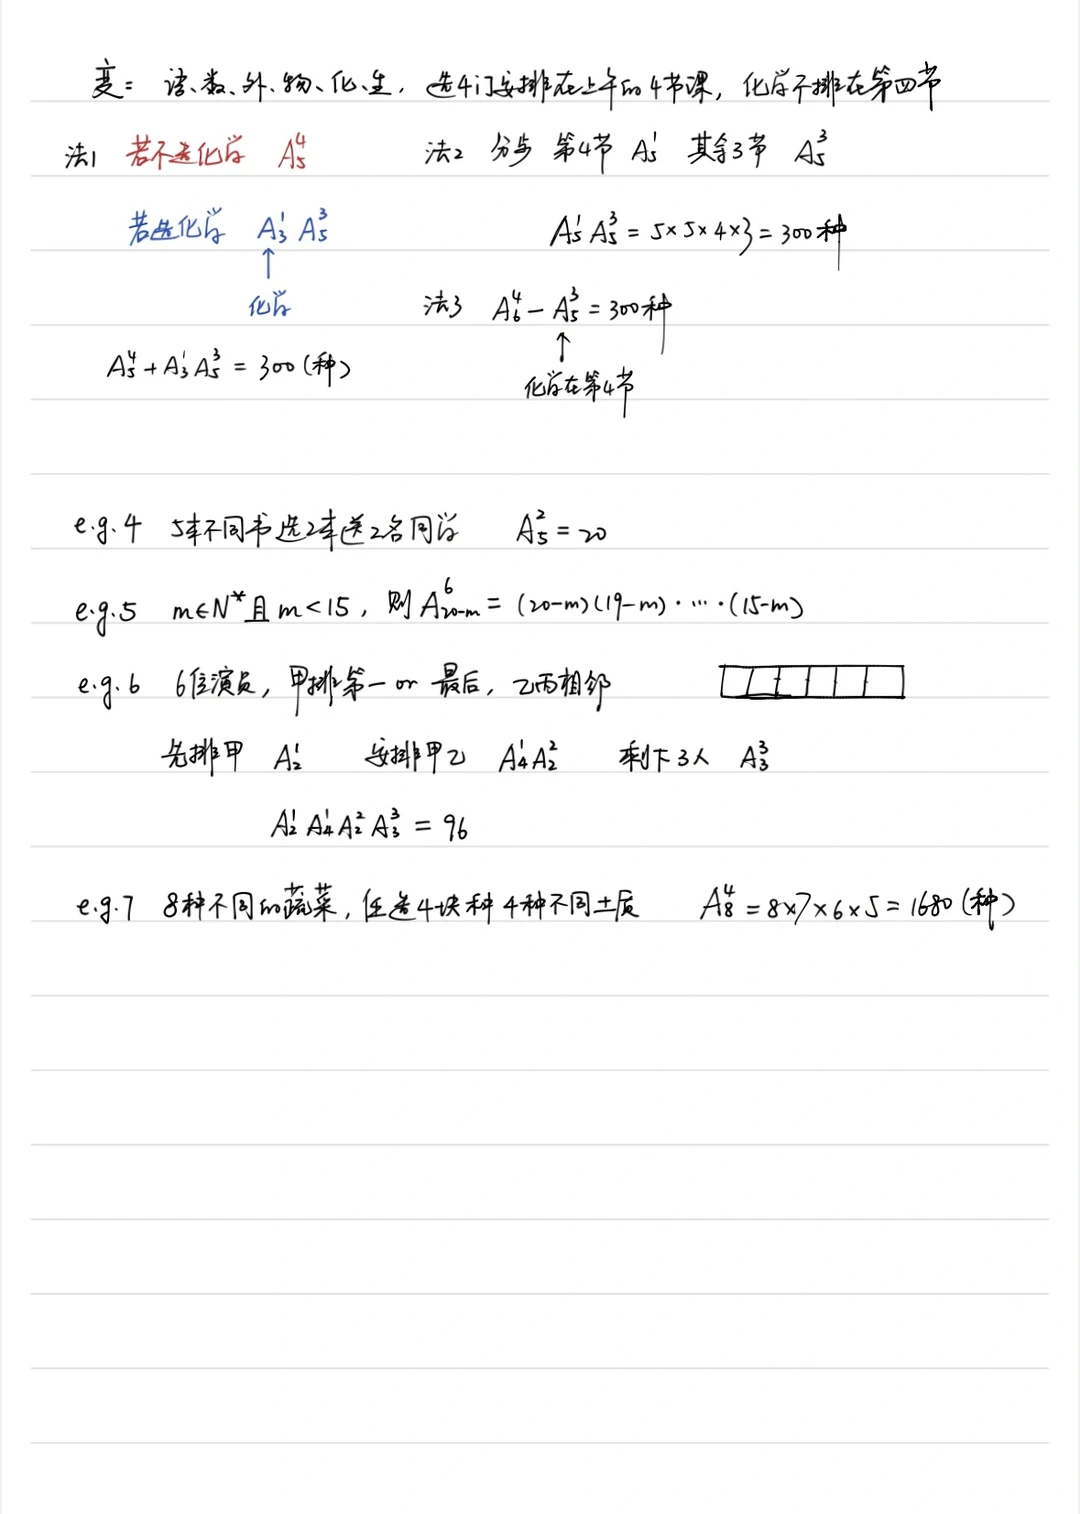 变: 语、数、外、物、化、生, 选4门安排在上午的4节课, 化学不排在第四节
法1 若不选化学 A₅⁴
法2 分步 第4节 A₅¹ 其余3节 A₅³
若选化学 A₃¹ A₅³
↑
化学
A₅¹ A₅³ = 5×5×4×3 = 300种
A₅⁴ + A₃¹ A₅³ = 300 (种)
法3 A₆⁴ - A₅³ = 300种
↑
化学在第4节
e.g.4 5本不同书选2本送2名同学 A₅² = 20
e.g.5 m∈N* 且 m<15, 则 A₂₀₋ₘ⁶ = (20-m)(19-m)·…·(15-m)
e.g.6 6位演员, 甲排第一 or 最后, 乙丙相邻
先排甲 A₂¹ 安排甲乙 A₄¹A₂² 剩下3人 A₃³
A₂¹ A₄¹ A₂² A₃³ = 96
e.g.7 8种不同的蔬菜, 任选4块种4种不同土质 A₈⁴ = 8×7×6×5 = 1680 (种)